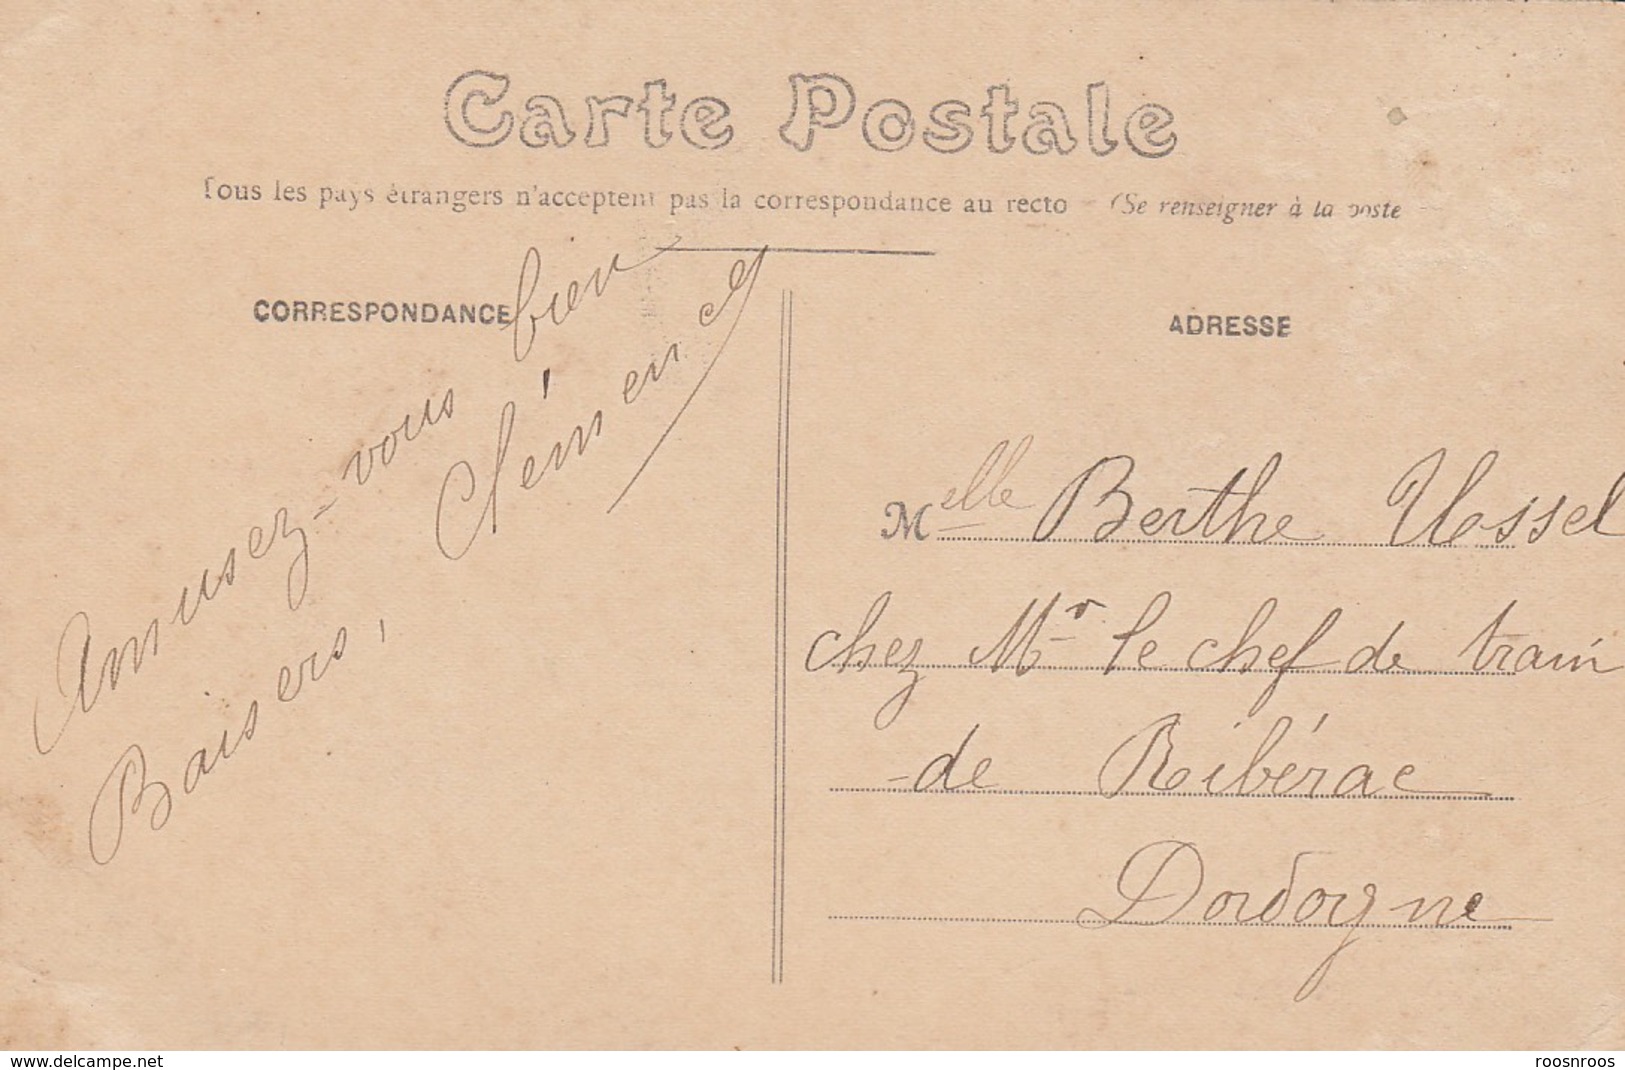 Carte Postale
Tous les pays étrangers n'acceptent pas la correspondance au recto - (Se renseigner à la poste
CORRESPONDANCE
Amusez-vous bien
Baisers,
Clémence
ADRESSE
Melle Berthe Ussel
chez Mr le chef de train
de Ribérac
Dordogne
www.delcampe.net
roosnroos